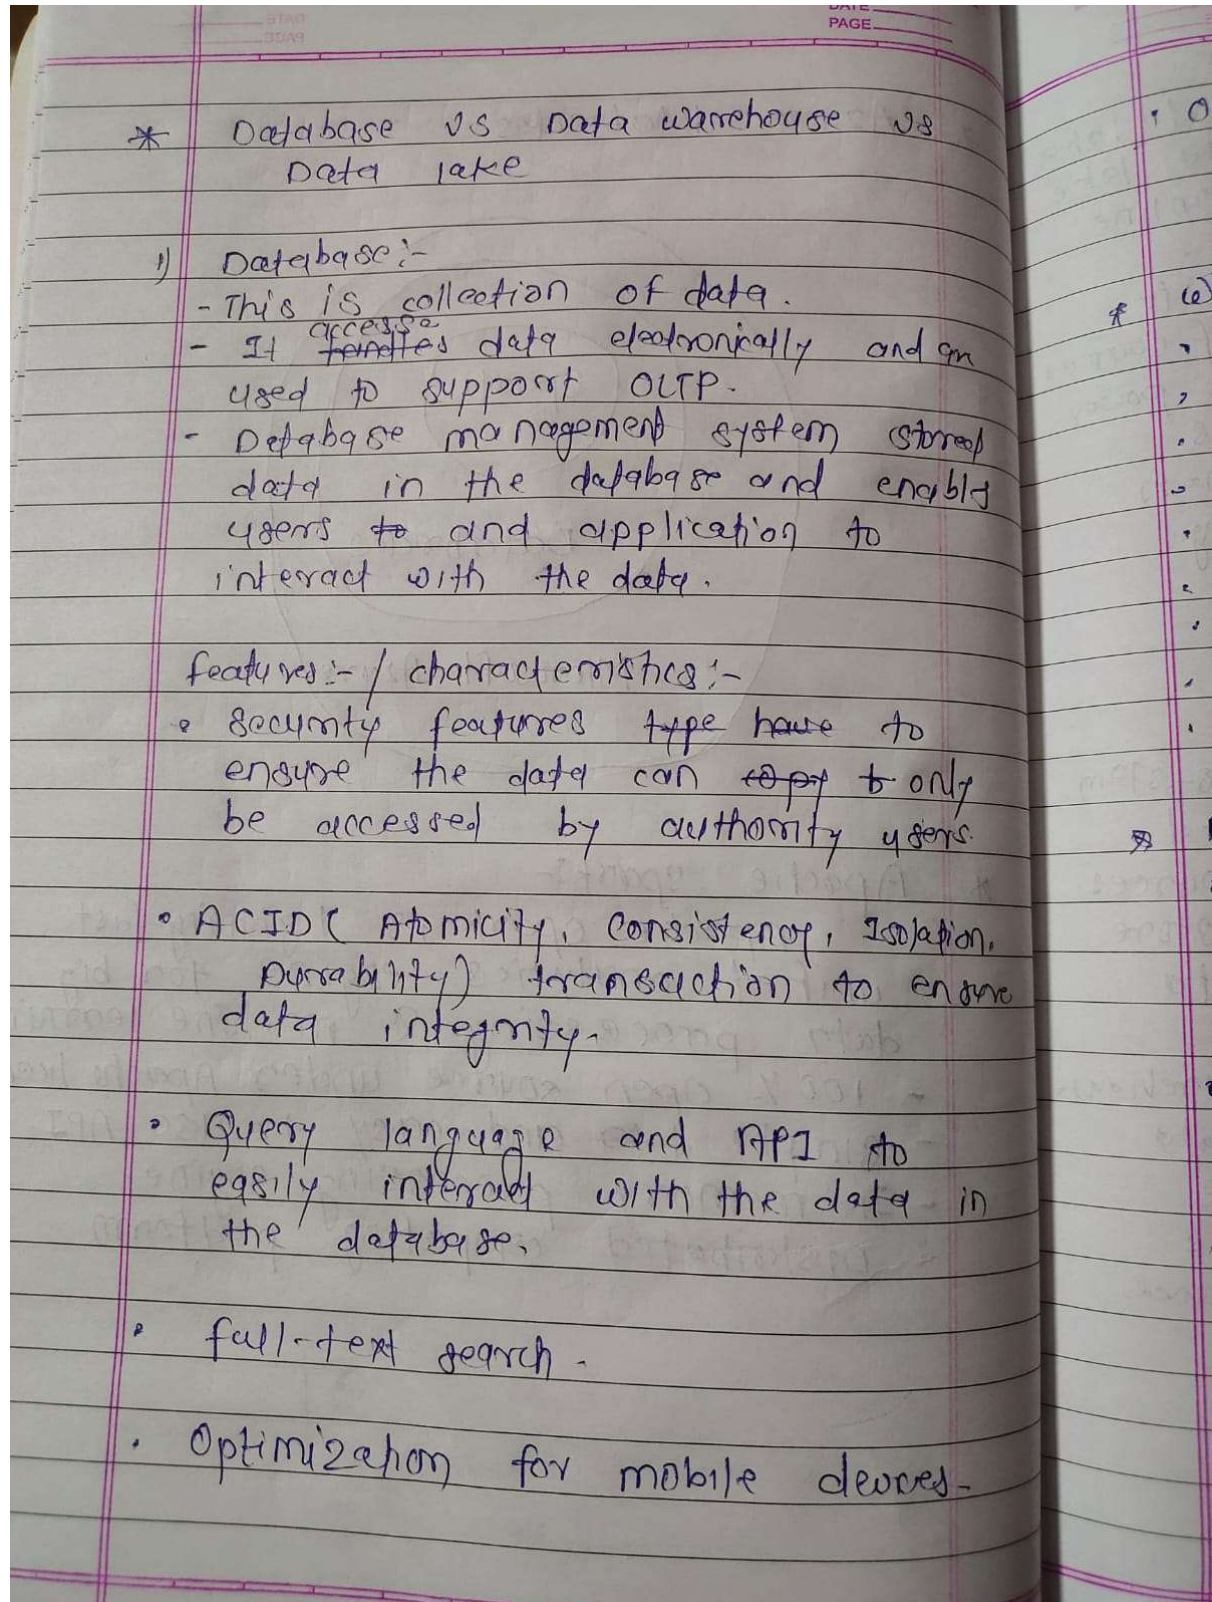 DATE
PAGE
* Database vs Data warrehouse vs
Data lake
1) Database:-
- This is collection of data.
accesse
- It handles data electronically and an
used to support OLTP.
- Database management system stored
data in the database and enable
users to and application to
interact with the data.
features:- / characteristics:-
• security features type have to
ensure the data can only
be accessed by authority users.
• ACID( Atomicity, Consistency, Isolation,
Durability) transaction to ensure
data integrity.
• Query language and API to
easily interact with the data in
the database.
• full-text search.
• Optimization for mobile devices-